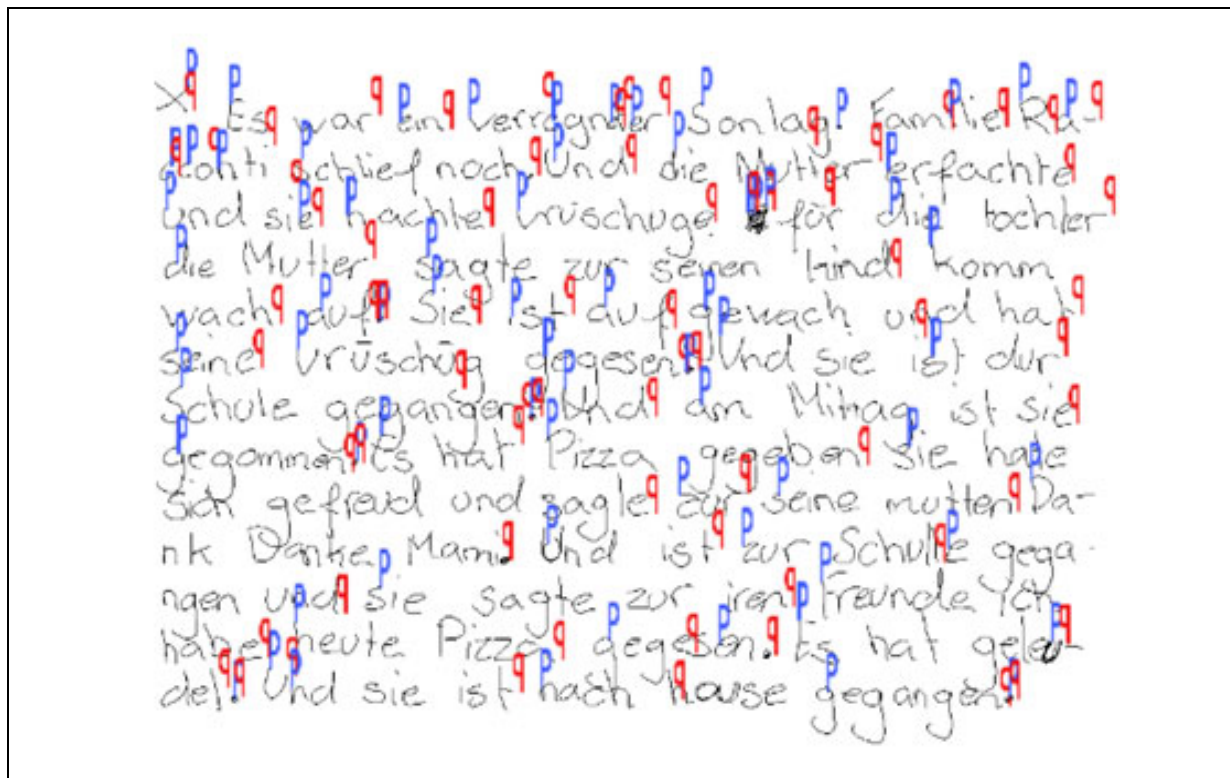 Es war ein verregnder Sonlag. Familie Ra-
conti schlief noch. Und die Mutter erfachte
und sie machte vrüschuge für die tochter
die Mutter sagte zur seinen kind komm
wach auf. Sie ist auf gewach und hat
seine vrüschüg gegesen. Und sie ist dur
Schule gegangen. Und am Mitrag ist sie
gegommen. Es hat Pizza gegeben sie habe
sich gefreud und sagte zur seine mutter Da-
nk Danke Mami. Und ist zur Schulle gega-
ngen und sie sagte zur iren Freunde ich
habe heute Pizza gegesen. Es hat gele-
del. Und sie ist nach hause gegangen.